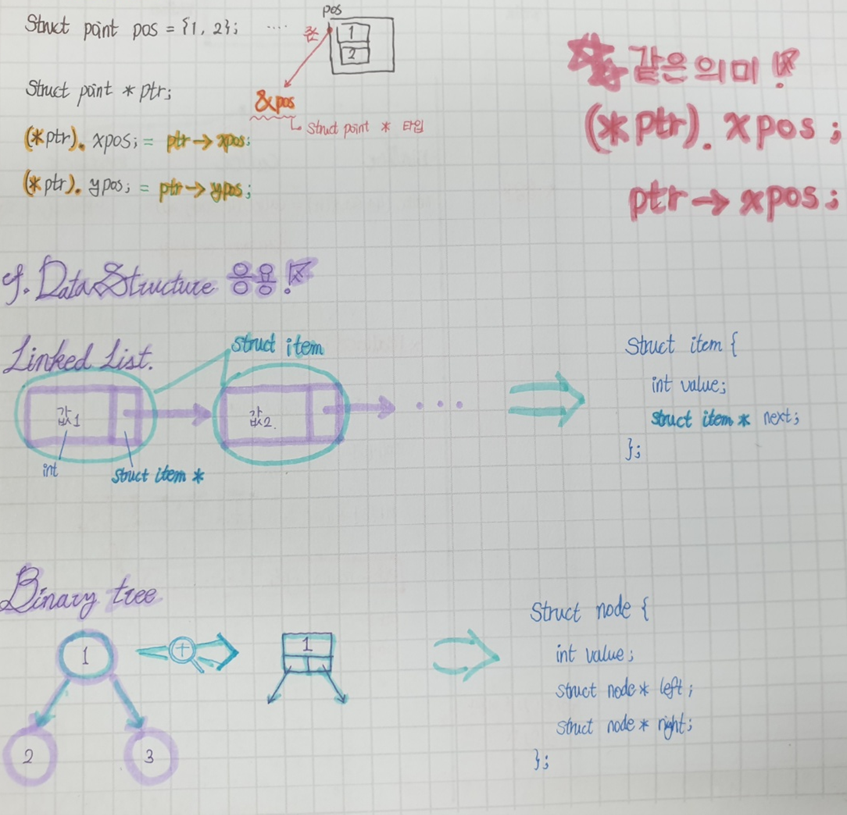 Struct point pos = {1, 2}; ....
pos
1
2
&pos
Struct point * 타입
Struct point * ptr;
(*ptr). xpos; = ptr → xpos;
(*ptr). ypos; = ptr → ypos;
같은의미!
(*ptr). xpos;
ptr → xpos;
cf. Data Structure 응용!
Linked List.
Struct item
값1
값2.
...
int
Struct item *
Struct item {
int value;
struct item * next;
};
Binary tree
1
2
3
+
1
Struct node {
int value;
struct node * left;
struct node * right;
};